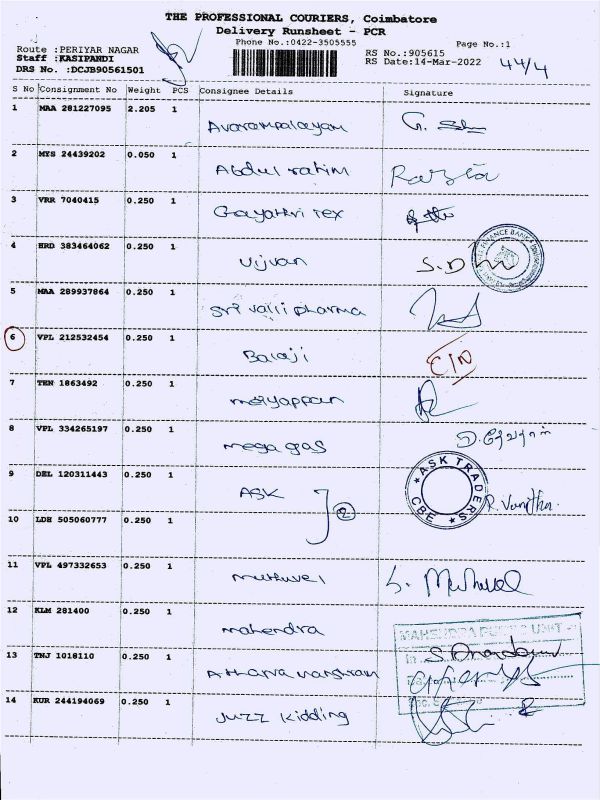 THE PROFESSIONAL COURIERS, Coimbatore
Delivery Runsheet - PCR
Phone No.:0422-3505555
Page No.:1
Route :PERIYAR NAGAR
Staff :KASIPANDI
DRS No. :DCJB90561501
RS No.:905615
RS Date:14-Mar-2022
44/4
S No Consignment No Weight PCS Consignee Details Signature
1 MAA 281227095 2.205 1
Avarampalayam
2 MYS 24439202 0.050 1
Abdul rahim
3 VRR 7040415 0.250 1
Gayathri Tex
4 HRD 383464062 0.250 1
Vijvan S.D
FINANCE BANK
5 MAA 289937864 0.250 1
Sri Valli Pharma
6 VPL 212532454 0.250 1
Balaji
7 TEN 1863492 0.250 1
Meiyappan
8 VPL 334265197 0.250 1
Mega gas
9 DEL 120311443 0.250 1
ASK 2
ASK TRADERS
CBE
R. Vanitha
10 LDH 505060777 0.250 1
11 VPL 497332653 0.250 1
Muthuvel
12 KLM 281400 0.250 1
Mahendra
MAHENDRA PUMPS UNIT
13 TNJ 1018110 0.250 1
14 KUR 244194069 0.250 1
Juzz Kidding